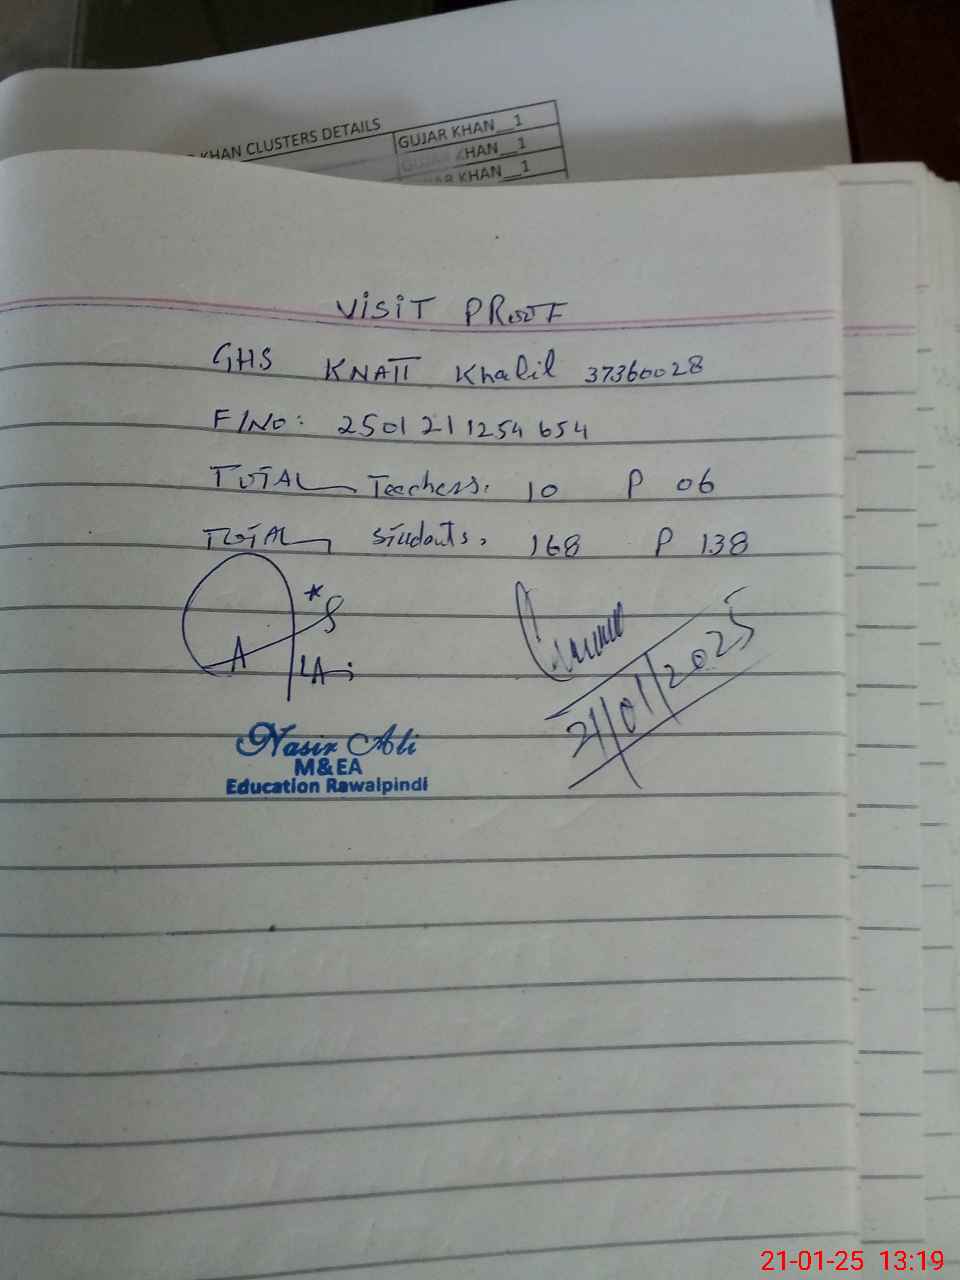 KHAN CLUSTERS DETAILS
GUJAR KHAN__1
GUJAR KHAN__1
KHAN__1
VISIT PROOF
GHS KNATT Khalil 37360028
F/No: 250121 1254 654
TOTAL Teachers. 10 P 06
TOTAL Students. 168 P 138
21/01/2025
Nasir Ali
M&EA
Education Rawalpindi
21-01-25 13:19